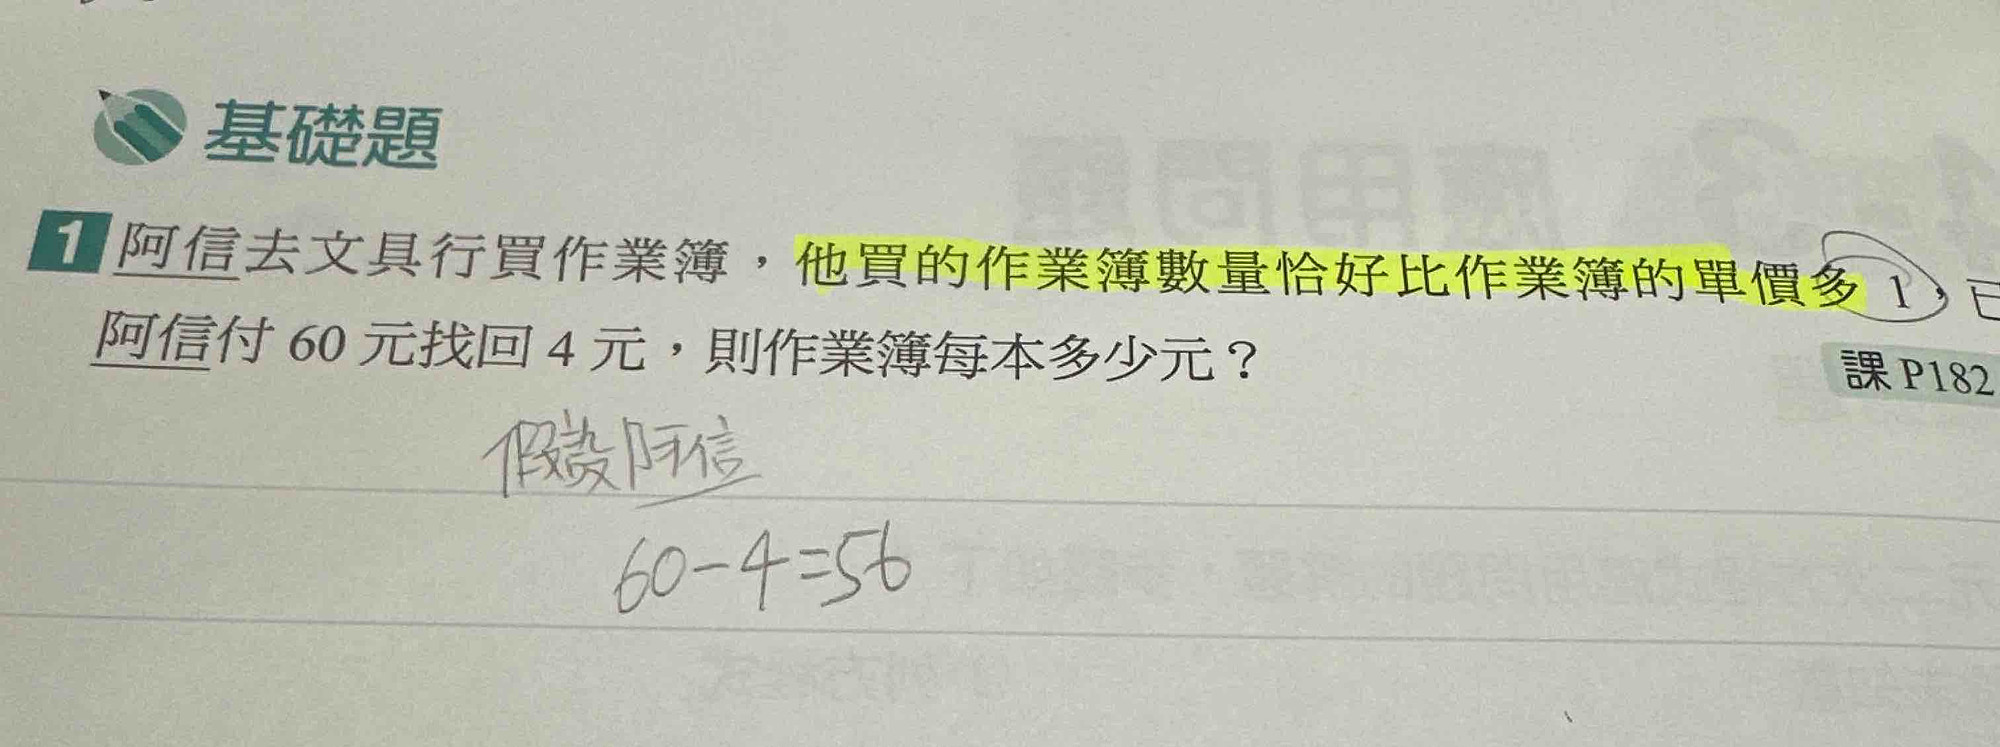 基礎題
1 阿信去文具行買作業簿，他買的作業簿數量恰好比作業簿的單價多 1，已
阿信付 60 元找回 4 元，則作業簿每本多少元？
課 P182
假設阿信
60-4=56